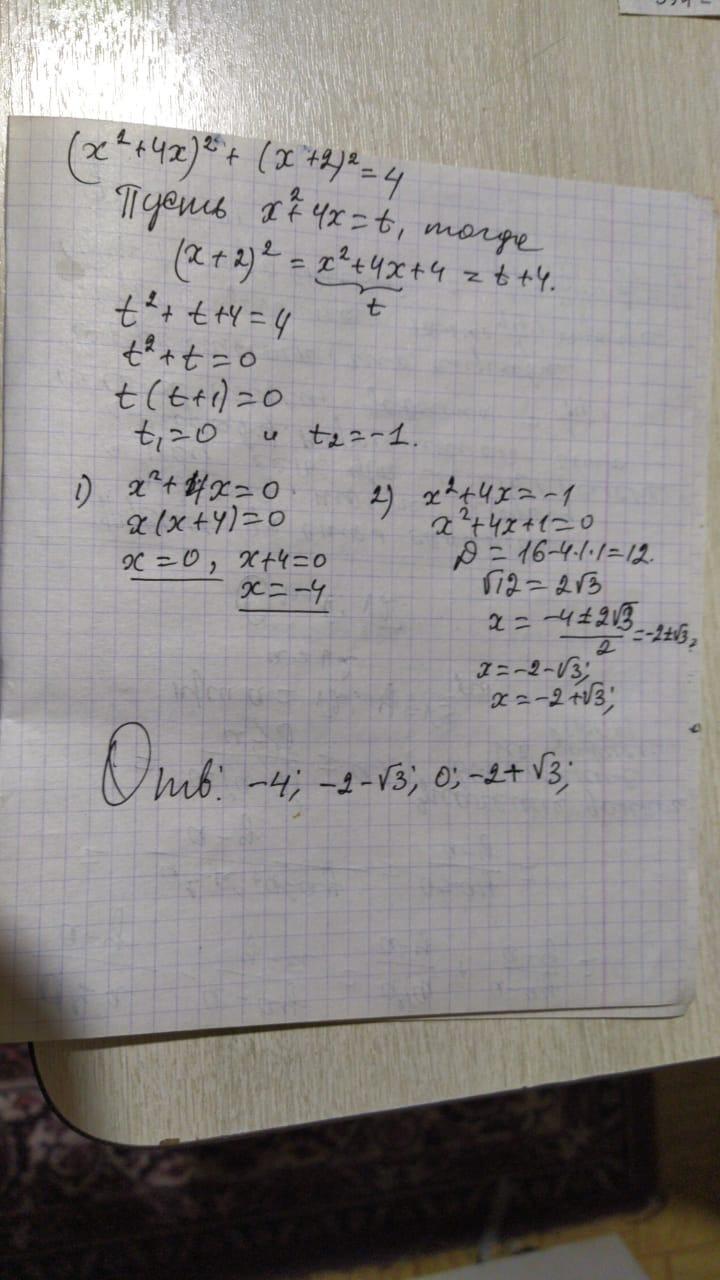 (x²+4x)²+(x+2)²=4
Пусть x²+4x=t, тогда
(x+2)²=x²+4x+4=t+4.
t
t²+t+4=4
t²+t=0
t(t+1)=0
t₁=0 и t₂=-1.
1) x²+4x=0
x(x+4)=0
x=0, x+4=0
x=-4
2) x²+4x=-1
x²+4x+1=0
D=16-4·1·1=12.
√12=2√3
x=(-4±2√3)/2=-2±√3;
x=-2-√3;
x=-2+√3;
Отв: -4; -2-√3; 0; -2+√3;